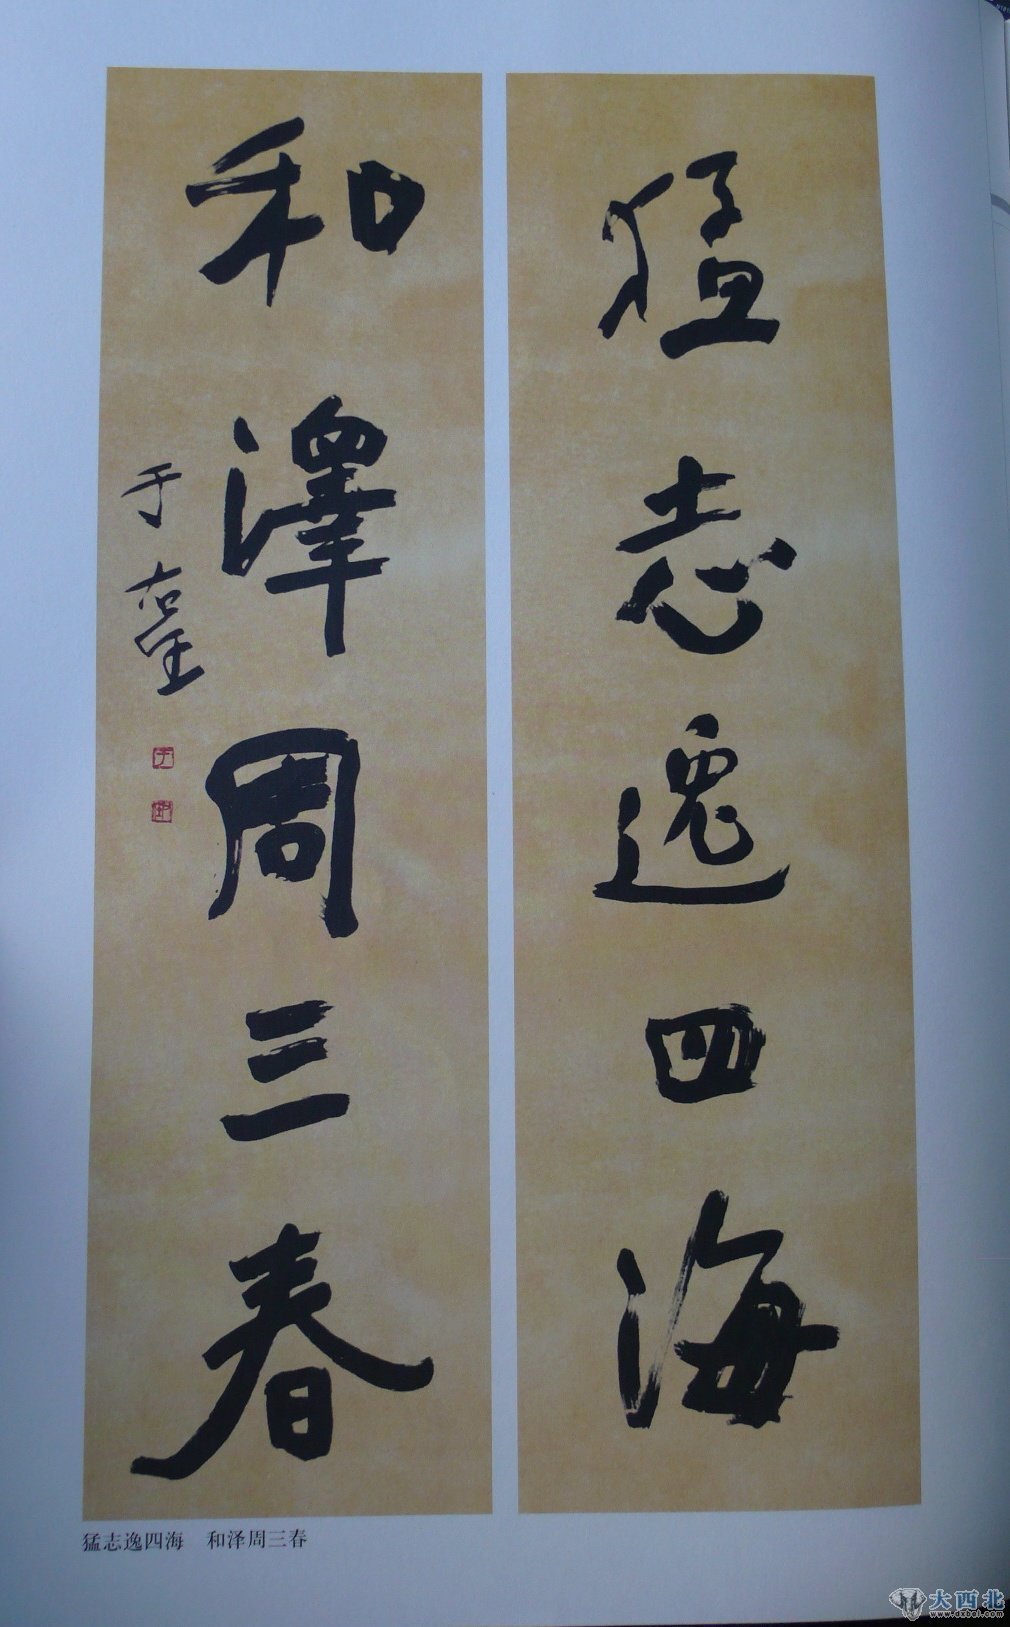 猛志逸四海
和澤周三春
于右任
猛志逸四海　和泽周三春
大西北
www.dxbei.com